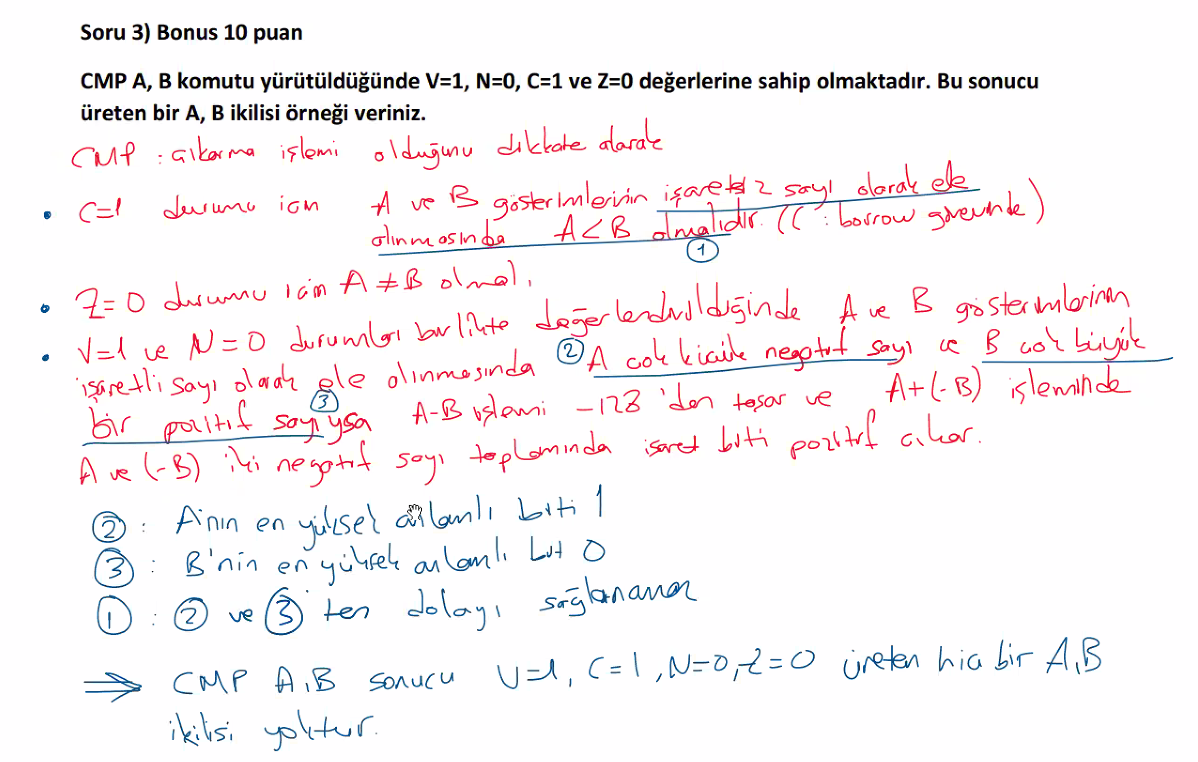 Soru 3) Bonus 10 puan
CMP A, B komutu yürütüldüğünde V=1, N=0, C=1 ve Z=0 değerlerine sahip olmaktadır. Bu sonucu
üreten bir A, B ikilisi örneği veriniz.
CMP : çıkarma işlemi olduğunu dikkate alarak
• C=1 durumu için A ve B gösterimlerinin işaretsiz sayı olarak ele
alınmasında A<B olmalıdır. (C : borrow görevinde)
1
• Z=0 durumu için A ≠ B olmalı.
• V=1 ve N=0 durumları birlikte değerlendirildiğinde A ve B gösterimlerinin
işaretli sayı olarak ele alınmasında ② A çok küçük negatif sayı ve B çok büyük
bir pozitif sayıysa ③ A-B işlemi -128'den taşar ve A+(-B) işleminde
A ve (-B) iki negatif sayı toplamında işaret biti pozitif çıkar.
② : A'nın en yüksek anlamlı biti 1
③ : B'nin en yüksek anlamlı bit 0
① : ② ve ③'ten dolayı sağlanamaz
⇒ CMP A,B sonucu V=1, C=1, N=0, Z=0 üreten hiç bir A,B
ikilisi yoktur.